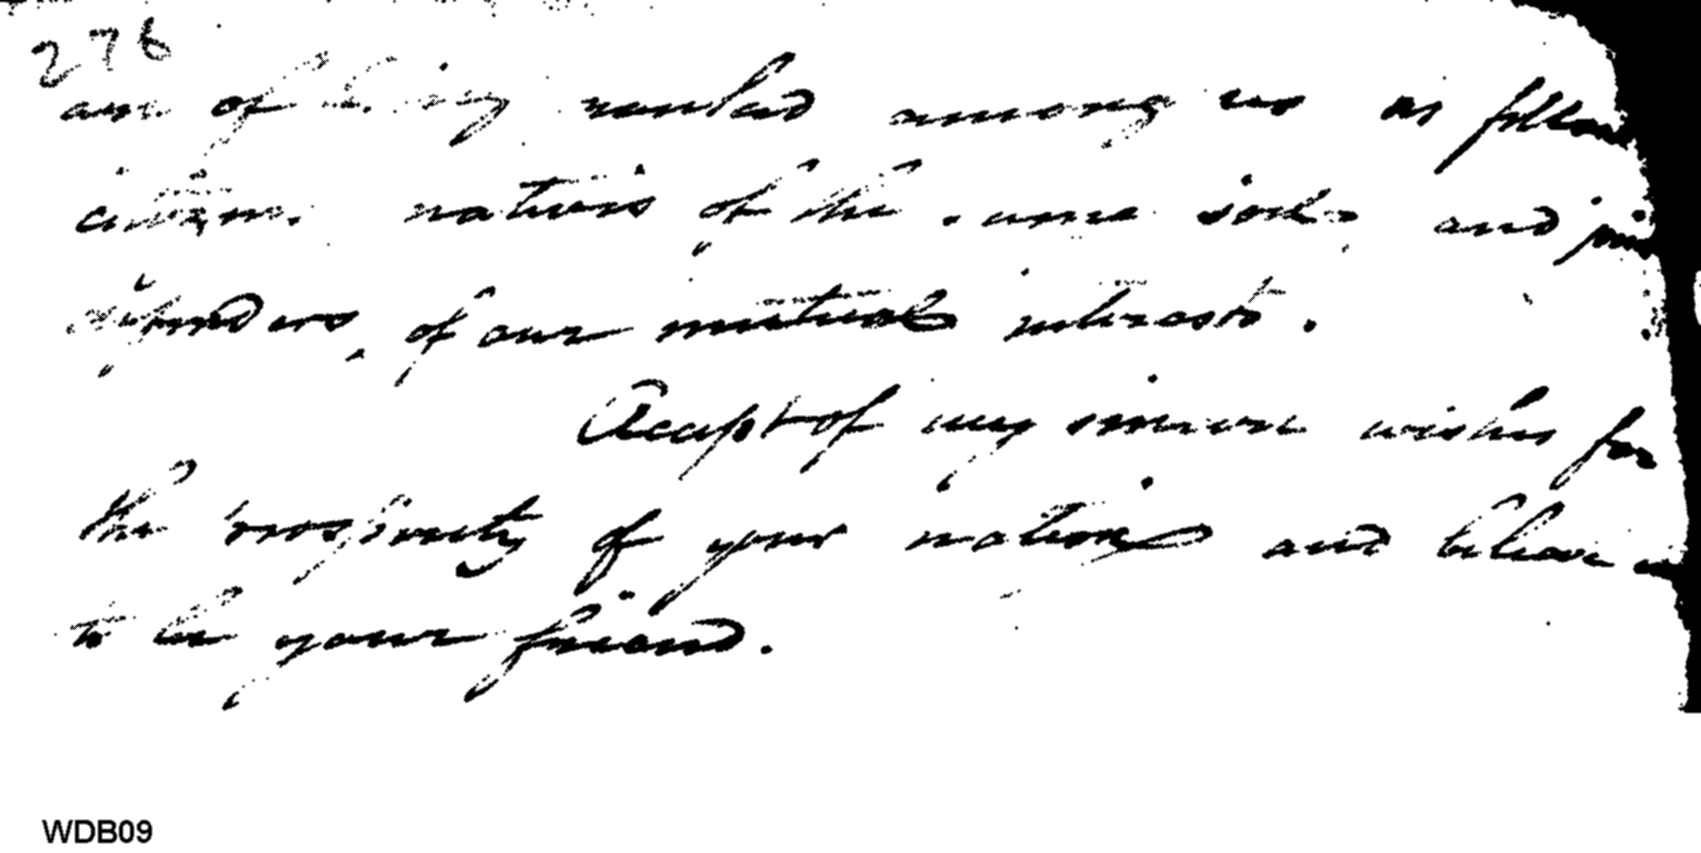 276
of being ranked among us as fellow
citizens, natives of the same soil, and
defenders, of our mutual interests.
Accept of my sincere wishes for
the prosperity of your nation and believe
to be your friend.
WDB09